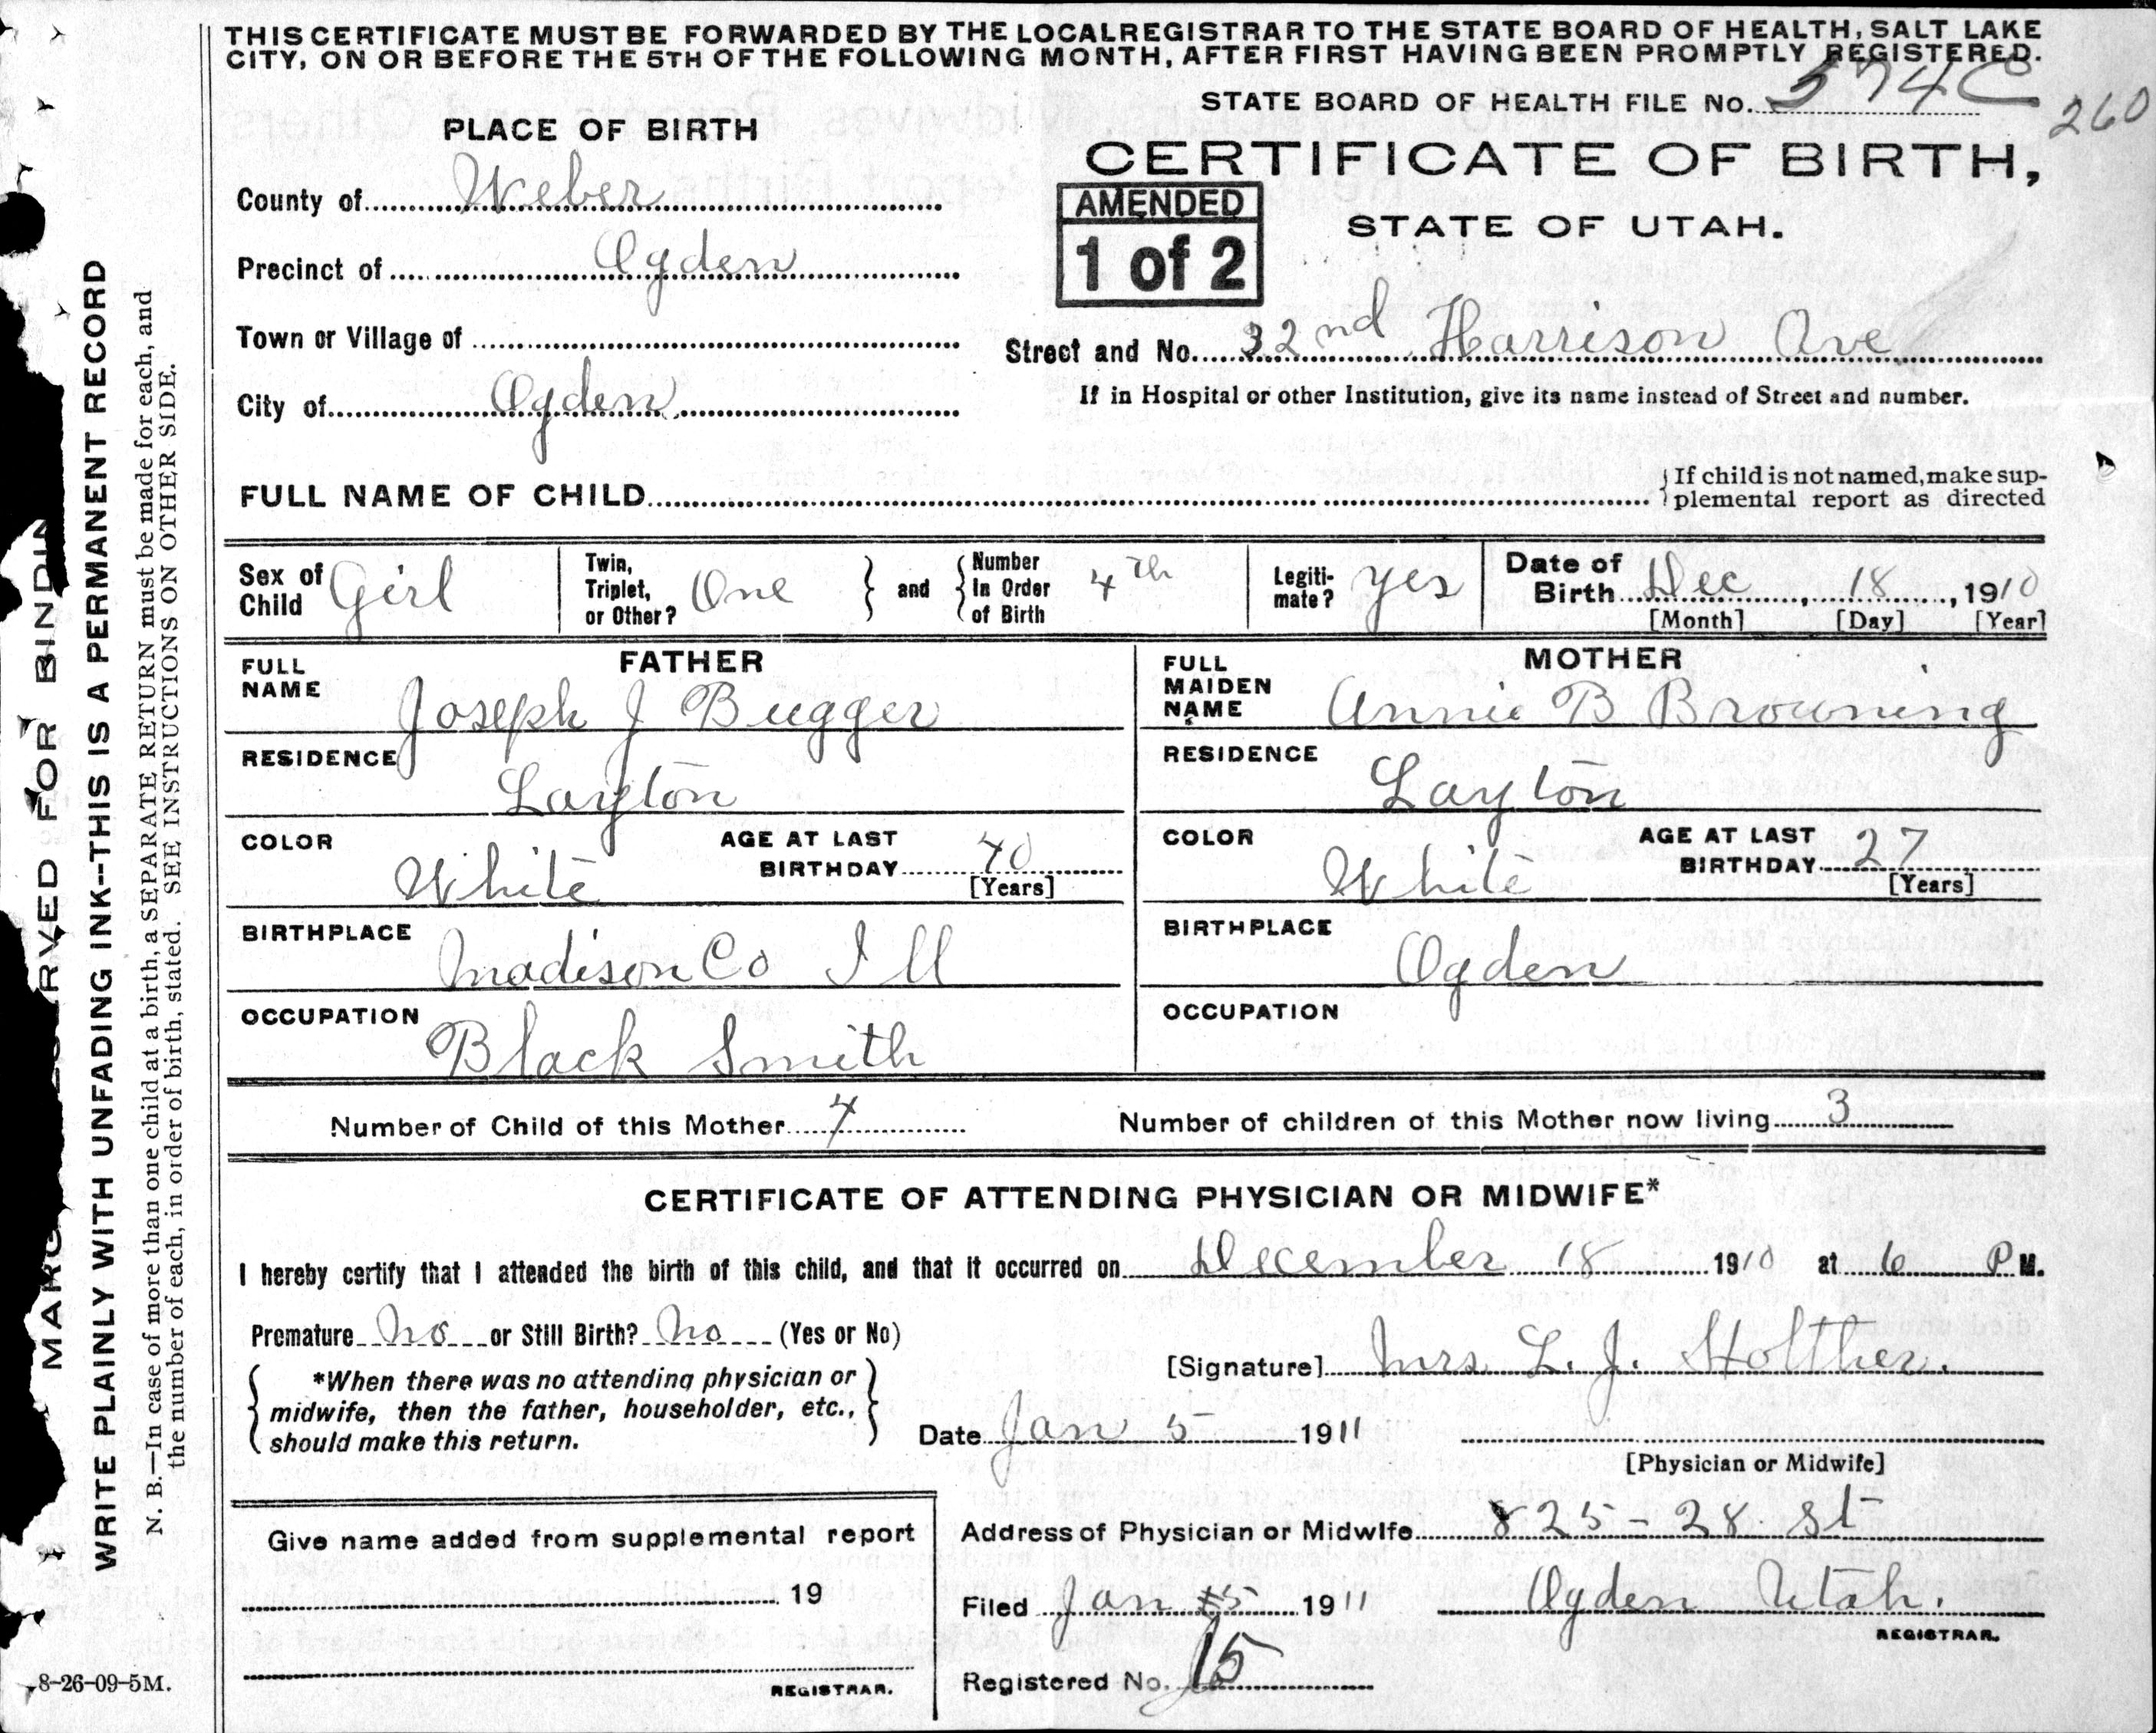 THIS CERTIFICATE MUST BE FORWARDED BY THE LOCALREGISTRAR TO THE STATE BOARD OF HEALTH, SALT LAKE
CITY, ON OR BEFORE THE 5TH OF THE FOLLOWING MONTH, AFTER FIRST HAVING BEEN PROMPTLY REGISTERED.
STATE BOARD OF HEALTH FILE NO. 574C
260
PLACE OF BIRTH
CERTIFICATE OF BIRTH,
STATE OF UTAH.
AMENDED
1 of 2
County of Weber
Precinct of Ogden
Town or Village of
Street and No. 32nd Harrison Ave
City of Ogden
If in Hospital or other Institution, give its name instead of Street and number.
FULL NAME OF CHILD
If child is not named, make sup-
plemental report as directed
Sex of Child Girl
Twin, Triplet, or Other? One
and Number In Order of Birth 4th
Legiti-mate? yes
Date of Birth Dec, 18, 1910
[Month] [Day] [Year]
FATHER
FULL NAME Joseph J Bugger
RESIDENCE Layton
COLOR White
AGE AT LAST BIRTHDAY 40
[Years]
BIRTHPLACE Madison Co Ill
OCCUPATION Black Smith
MOTHER
FULL MAIDEN NAME Annie B Browning
RESIDENCE Layton
COLOR White
AGE AT LAST BIRTHDAY 27
[Years]
BIRTHPLACE Ogden
OCCUPATION
Number of Child of this Mother 4
Number of children of this Mother now living 3
CERTIFICATE OF ATTENDING PHYSICIAN OR MIDWIFE*
I hereby certify that I attended the birth of this child, and that it occurred on December 18 1910 at 6 P M.
Premature No or Still Birth? No (Yes or No)
*When there was no attending physician or
midwife, then the father, householder, etc.,
should make this return.
[Signature] Mrs L. J. Holther.
Date Jan 5 1911
[Physician or Midwife]
Give name added from supplemental report
19
REGISTRAR.
Address of Physician or Midwife 825-28 St
Filed Jan 5 1911 Ogden Utah.
REGISTRAR.
Registered No. 15
8-26-09-5M.
WRITE PLAINLY WITH UNFADING INK--THIS IS A PERMANENT RECORD
N. B.—In case of more than one child at a birth, a SEPARATE RETURN must be made for each, and
the number of each, in order of birth, stated. SEE INSTRUCTIONS ON OTHER SIDE.
FOR